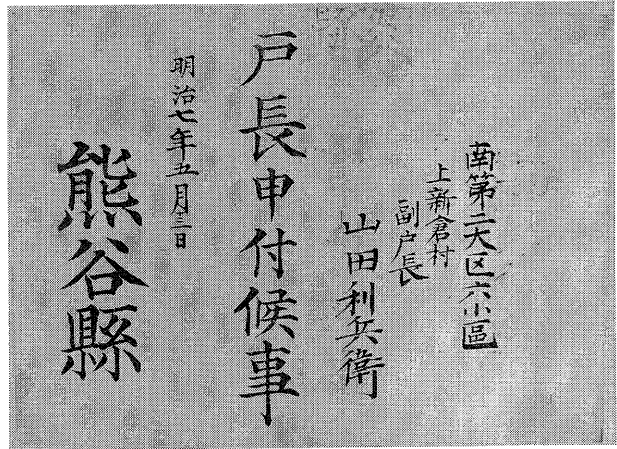 南第二大区六小區
上新倉村
副戸長
山田利兵衛
戸長申付候事
明治七年五月三日
熊谷縣